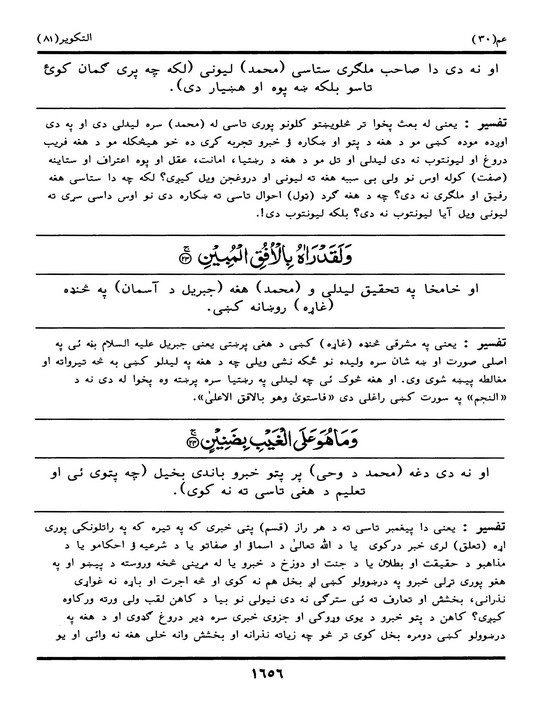 عم(٣٠) التکویر(٨١)
او نه دی دا صاحب ملګری ستاسی (محمد) لیونی (لکه چه پری ګمان کوئ
تاسو بلکه ښه پوه او هښیار دی).
تفسیر : یعنی له بعث پخوا تر څلویښتو کلونو پوری تاسی له (محمد) سره لیدلی دی او په دی
اوږده موده کښی مو د هغه د پټو او ښکاره ؤ خبرو تجربه کړی ده خو هیڅکله مو د هغه فریب
دروغ او لیونتوب نه دی لیدلی او تل مو د هغه د رښتیا، امانت، عقل او پوه اعتراف او ستاینه
(صفت) کوله اوس نو ولی بی سببه هغه ته لیونی او دروغجن ویل کیږی؟ لکه چه دا ستاسی هغه
رفیق او ملګری نه دی؟ چه د هغه ګرد (ټول) احوال تاسی ته ښکاره دی نو اوس داسی سړی ته
لیونی ویل آیا لیونتوب نه دی؟ بلکه لیونتوب دی!.
وَلَقَدْ رَاٰهُ بِالْاُفُقِ الْمُبِیْنِ ﴿٢٣﴾
او خامخا په تحقیق لیدلی و (محمد) هغه (جبریل د آسمان) په څنډه
(غاړه) روښانه کښی.
تفسیر : یعنی په مشرقی څنډه (غاړه) کښی د هغی پرښتی یعنی جبریل علیه السلام بڼه ئی په
اصلی صورت او ښه شان سره ولیده نو ځکه نشی ویلی چه د هغه په لیدلو کښی به څه تیروتنه او
مغالطه پیښه شوی وی. او هغه څوک ئی چه لیدلی په رښتیا سره پرښته وه پخوا له دی نه د
«النجم» په سورت کښی راغلی دی «فاستویٰ وهو بالافق الاعلیٰ».
وَمَا هُوَ عَلَی الْغَیْبِ بِضَنِیْنٍ ﴿٢٤﴾
او نه دی دغه (محمد د وحی) پر پټو خبرو باندی بخیل (چه پټوی ئی او
تعلیم د هغی تاسی ته نه کوی).
تفسیر : یعنی دا پیغمبر تاسی ته د هر راز (قسم) پټی خبری که په تیره که په راتلونکی پوری
اړه (تعلق) لری خبر درکوی یا د الله تعالیٰ د اسماؤ او صفاتو یا د شرعیه ؤ احکامو یا د
مذاهبو د حقیقت او بطلان یا د جنت او دوزخ د خبرو یا له مرینی څخه وروسته د پیښو او په
هغو پوری تړلی خبرو په درښوولو کښی لږ بخل هم نه کوی او څه اجرت او باړه نه غواړی
نذرانی، بخشش او تعارف ته ئی سترګی نه دی نیولی نو بیا د کاهن لقب ولی ورته ورکاوه
کیږی؟ کاهن د پټو خبرو د یوی وړوکی او جزوی خبری سره ډیر دروغ ګډوی او د هغه په
درښوولو کښی دومره بخل کوی تر څو چه زیاته نذرانه او بخشش وانه خلی هغه نه وائی او یو
١٦٥٦